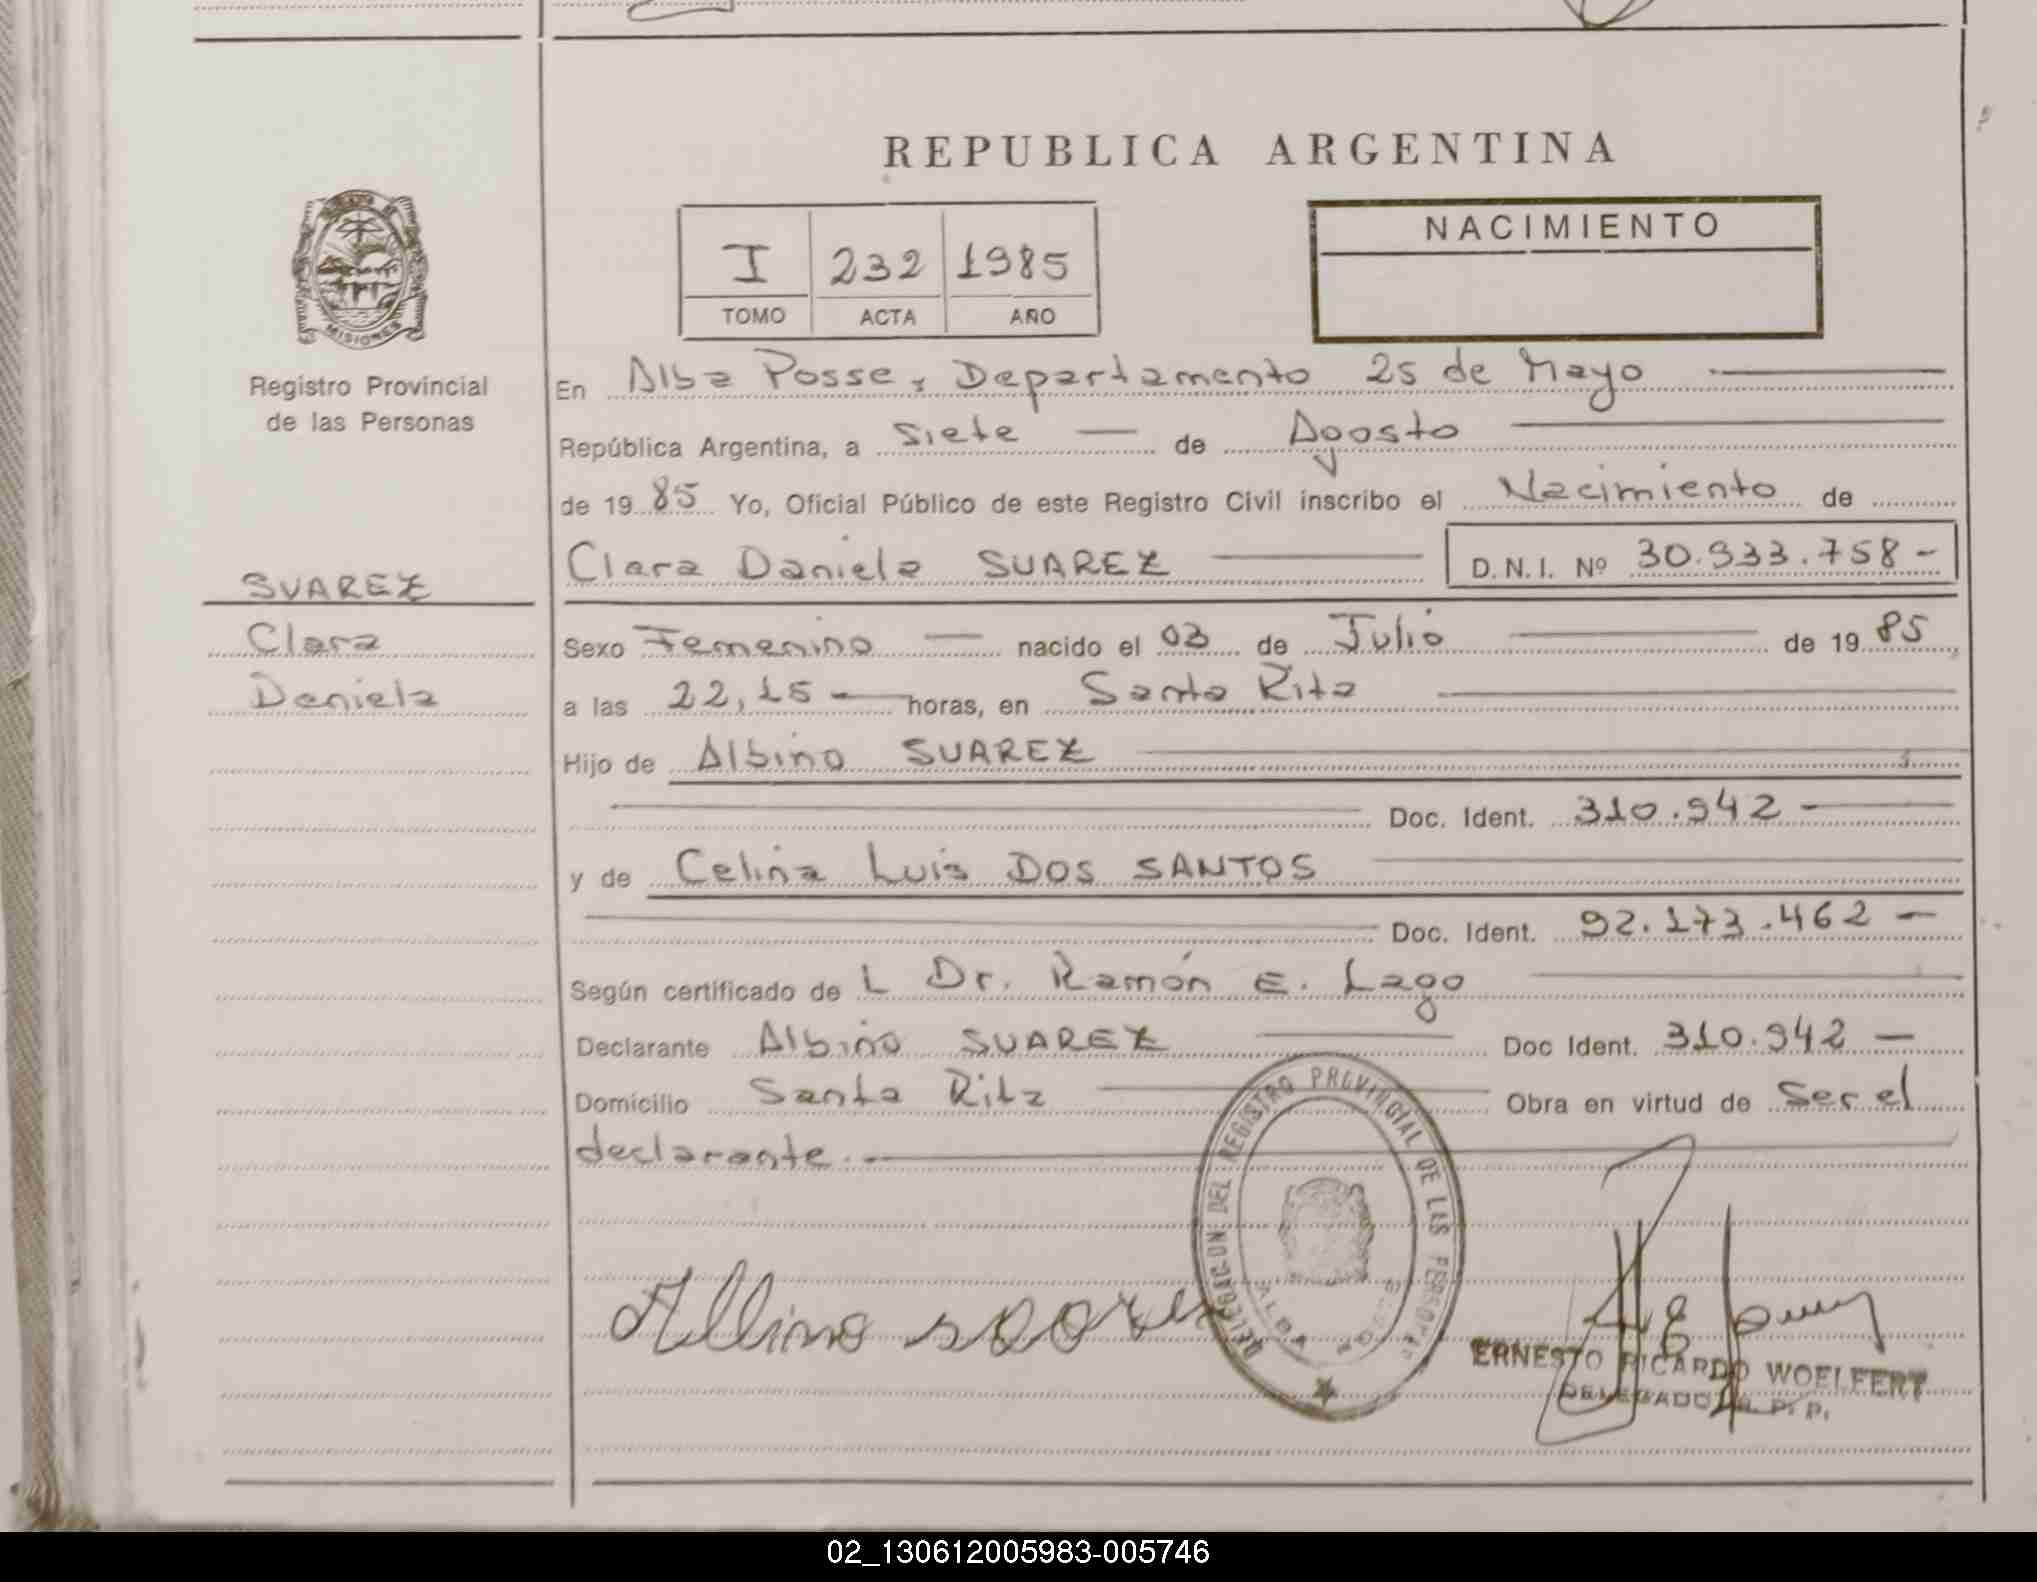 REPUBLICA ARGENTINA
I 232 1985
TOMO ACTA AÑO
NACIMIENTO
MISIONES
Registro Provincial
de las Personas
SUAREZ
Clara
Daniela
En Alba Posse, Departamento 25 de Mayo
República Argentina, a Siete de Agosto
de 1985 Yo, Oficial Público de este Registro Civil inscribo el Nacimiento de
Clara Daniela SUAREZ D.N.I. Nº 30.933.758-
Sexo Femenino nacido el 03 de Julio de 1985
a las 22,15 horas, en Santa Rita
Hijo de Albino SUAREZ
Doc. Ident. 310.942
y de Celina Luis DOS SANTOS
Doc. Ident. 92.173.462
Según certificado de L Dr. Ramón E. Lago
Declarante Albino SUAREZ Doc Ident. 310.942
Domicilio Santa Rita Obra en virtud de Ser el
declarante.
DELEGACION DEL REGISTRO PROVINCIAL DE LAS PERSONAS
ALBA POSSE
Albino
ERNESTO RICARDO WOELFERT
DELEGADO R. P. P.
02_130612005983-005746